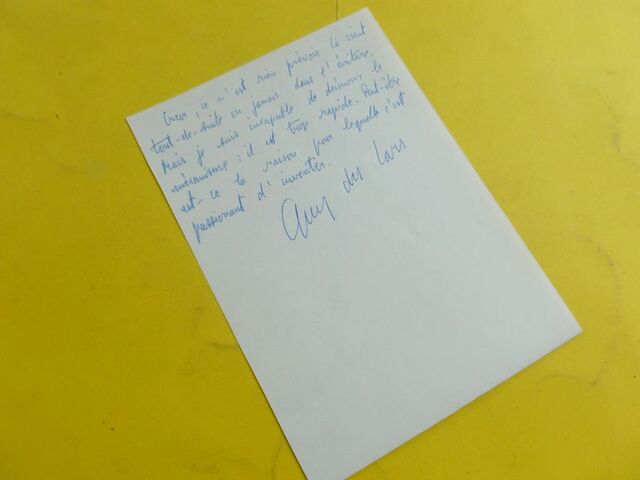 Créer, ce n'est rien prévoir. Ça vient
tout-de-suite ou jamais dans l'écriture.
Mais je suis incapable de démonter le
mécanisme : il est trop rapide. Peut-être
est-ce la raison pour laquelle c'est
passionant d'inventer.
Guy des Cars